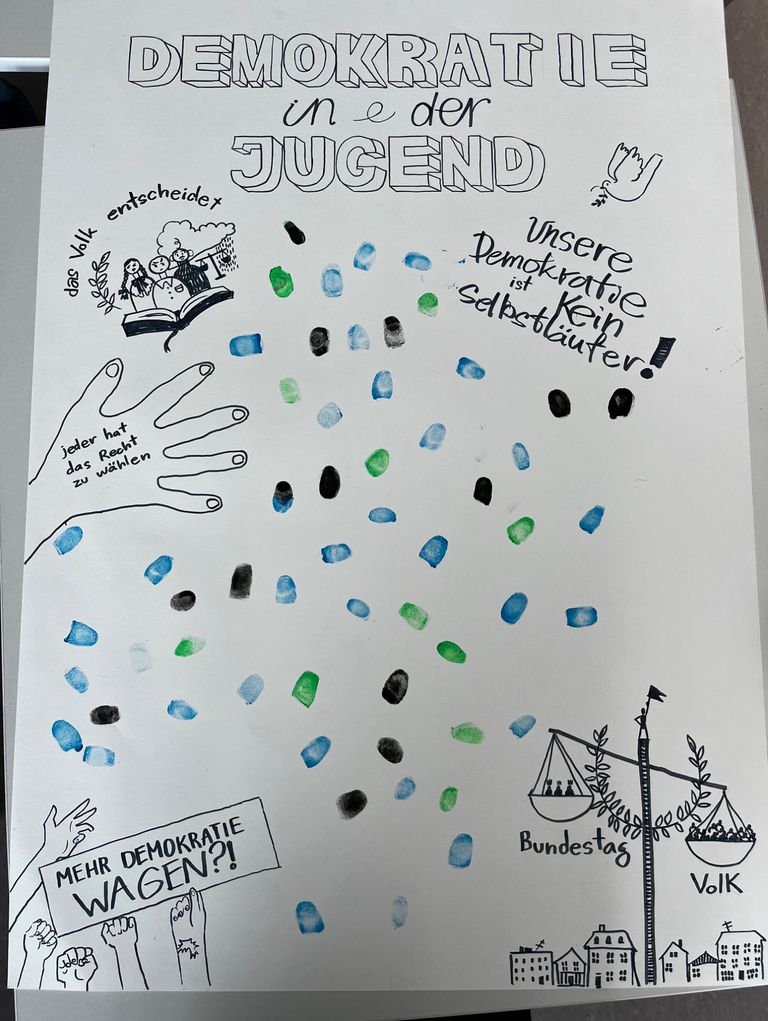 DEMOKRATIE
in e der
JUGEND
das Volk entscheidet
Unsere
Demokratie
ist Kein
Selbstläufer!
jeder hat
das Recht
zu wählen
MEHR DEMOKRATIE
WAGEN?!
Bundestag
Volk